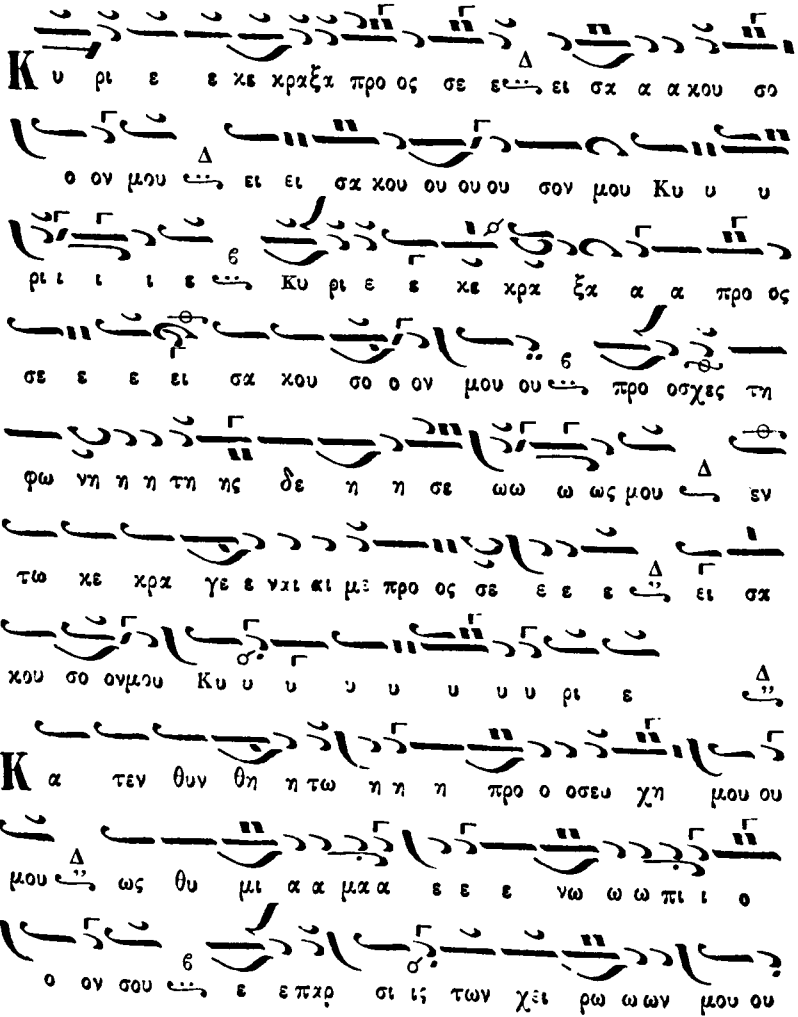 Κ υ ρι ε ε κε κραξα προ ος σε ε Δ ει σα α α κου σο
ο ον μου Δ ει ει σα κου ου ου ου σον μου Κυ υ υ
ρι ι ι ι ε ϐ Κυ ρι ε ε κε κρα ξα α α προ ος
σε ε ε ει σα κου σο ο ον μου ου ϐ προ οσχες τη
φω νη η η τη ης δε η η σε ωω ω ως μου Δ εν
τω κε κρα γε ε ναι αι με προ ος σε ε ε ε Δ ει σα
κου σο ονμου Κυ υ υ υ υ υ υ υ ρι ε Δ
Κ α τεν θυν θη η τω η η η προ ο οσευ χη μου ου
μου Δ ως θυ μι α α μα α ε ε ε νω ω ω πι ι ο
ο ον σου ϐ ε ε παρ σι ις των χει ρω ω ων μου ου